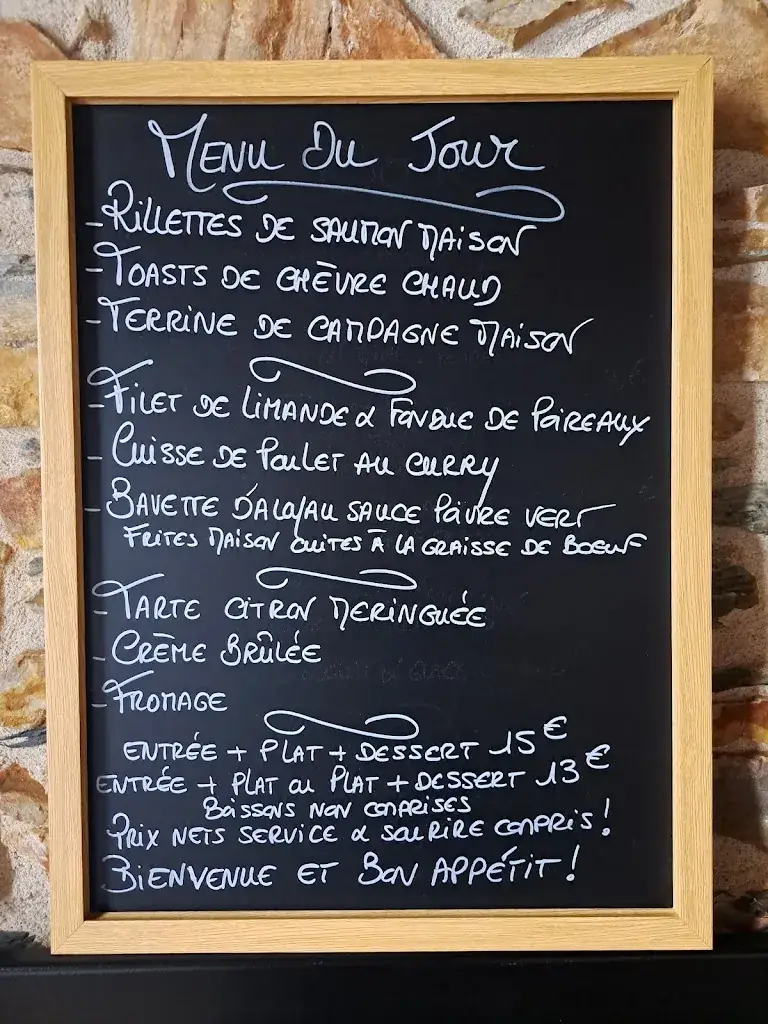 Menu Du Jour
- Rillettes de saumon maison
- Toasts de chèvre chaud
- Terrine de campagne maison
- Filet de limande & Fondue de Poireaux
- Cuisse de Poulet au curry
- Bavette d'aloyau sauce Poivre vert
Frites maison cuites à la graisse de boeuf
- Tarte citron meringuée
- Crème Brûlée
- Fromage
Entrée + Plat + Dessert 15€
Entrée + Plat ou Plat + Dessert 13€
Boissons non comprises
Prix nets service & sourire compris !
Bienvenue et Bon Appétit !